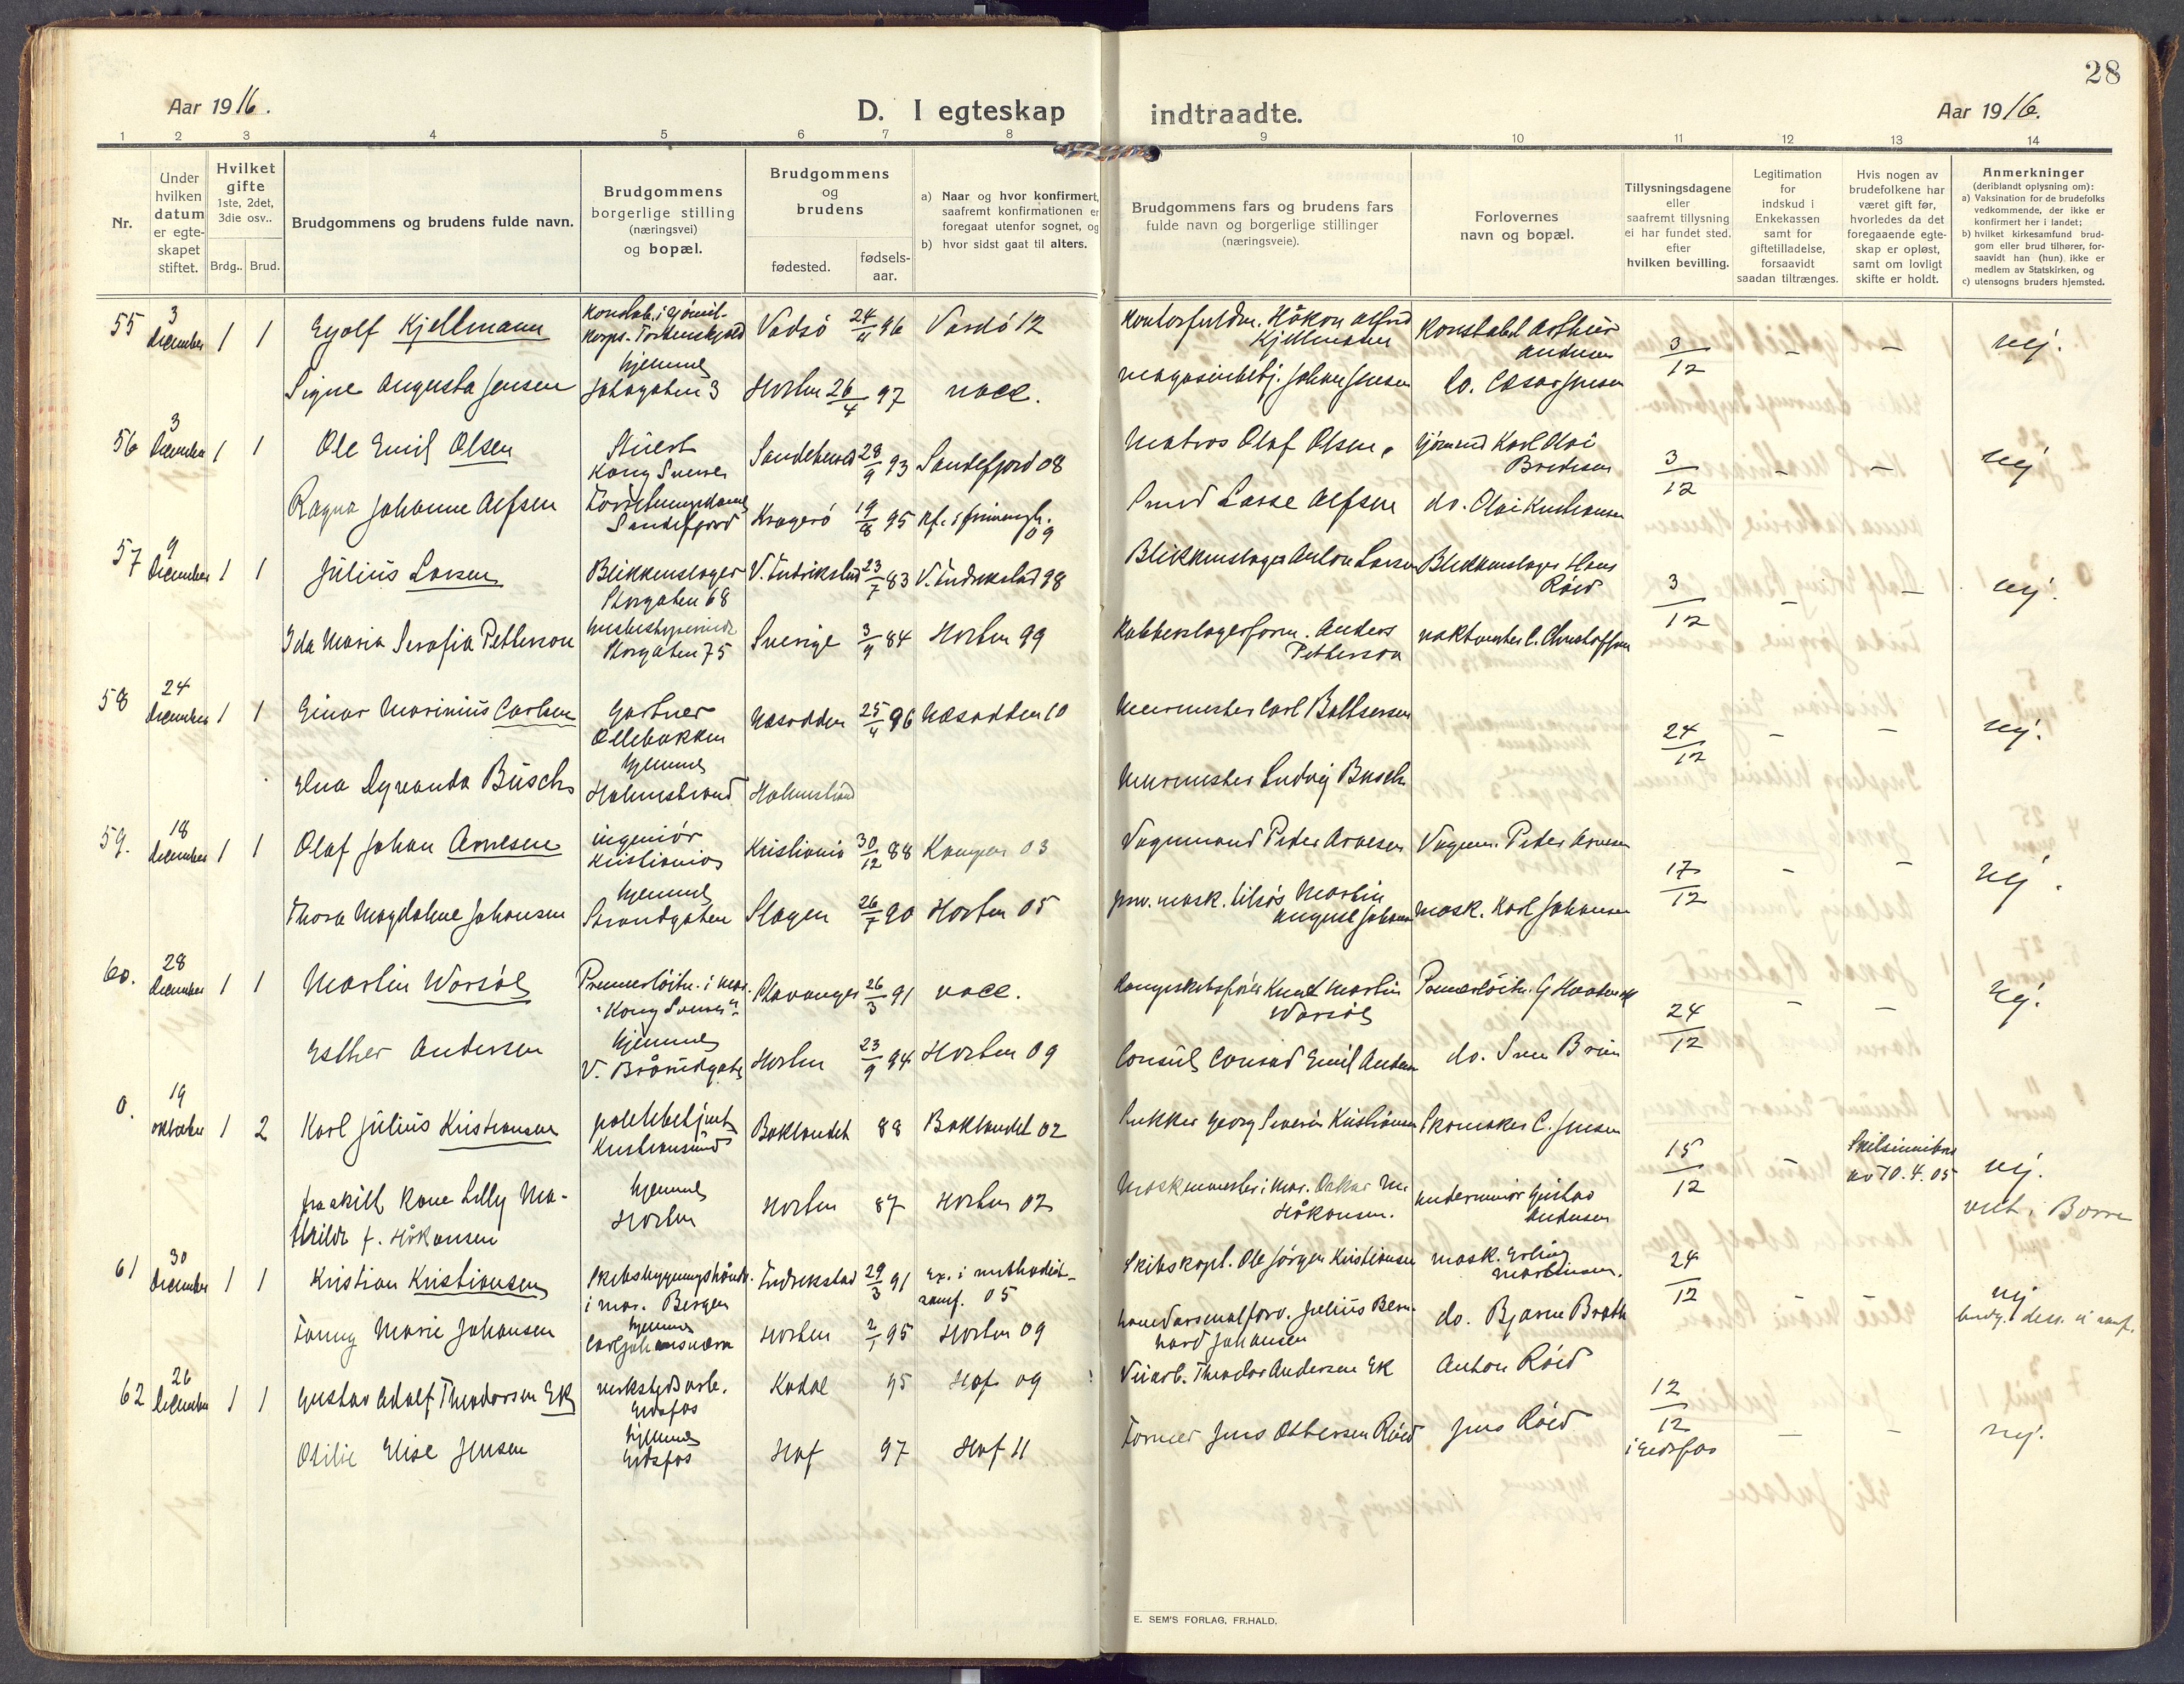 28
Aar 1916.
D. I egteskap indtraadte.
Aar 1916.
1 2 3 4 5 6 7 8 9 10 11 12 13 14
Nr.
Under hvilken datum er egteskapet stiftet.
Hvilket gifte 1ste, 2det, 3die osv..
Brdg.. Brud.
Brudgommens og brudens fulde navn.
Brudgommens borgerlige stilling (næringsvei) og bopæl.
Brudgommens og brudens
fødested.
fødsels-aar.
a) Naar og hvor konfirmert, saafremt konfirmationen er foregaat utenfor sognet, og
b) hvor sidst gaat til alters.
Brudgommens fars og brudens fars fulde navn og borgerlige stillinger (næringsveie).
Forlovernes navn og bopæl.
Tillysningsdagene eller saafremt tillysning ei har fundet sted, efter hvilken bevilling.
Legitimation for indskud i Enkekassen samt for giftetilladelse, forsaavidt saadan tiltrænges.
Hvis nogen av brudefolkene har været gift før, hvorledes da det foregaaende egteskap er opløst, samt om lovligt skifte er holdt.
Anmerkninger
(deriblandt oplysning om):
a) Vaksination for de brudefolks vedkommende, der ikke er konfirmert her i landet;
b) hvilket kirkesamfund brudgom eller brud tilhører, forsaavidt han (hun) ikke er medlem av Statskirken, og
c) utensogns bruders hjemsted.
55 3 december 1 1 Eyolf Kjellmann Vadsö 24/4 96 Vardö 12 Håkon Alfred Kjellmann Konstabel Arthur Andersen 3/12 – – nej.
Signe Augusta Jensen hjemme 3 Horten 26/4 97 vacc. Johan Jensen do. Jensen
56 3 december 1 1 Ole Emil Olsen Stuert Kong Sverre Sandeherred 28/9 93 Sandefjord 08 Matros Olaf Olsen Karl Olai 3/12 – – nej
Ragna Johanne Alfsen Sandefjord Kragerö 19/8 95 09 Smed Lasse Alfsen do. Olai Kristiansen
57 9 december 1 1 Julius Larsen Blikkenslager Storgaten 68 V. Fredrikstad 23/7 83 V. Fredrikstad 98 Blikkenslager Anton Larsen Blikkenslager Hans Röed 3/12 – – nej.
Ida Maria Serafia Petterson Storgaten 75 Sverige 3/4 84 Horten 99 Kobberslagerform. Anders Petterson C. Christoffersen
58 24 december 1 1 Einar Marinius Carlsen Gartner Næsodden 25/4 96 Næsodden 10 Murmester Carl Baltsersen 24/12 – – nej.
Elna Busch hjemme Holmestrand Holmestrand Murmester Ludvig Busch
59. 18 december 1 1 Olaf Johan Arnesen ingeniör Kristiania Kristiania 30/12 88 Kampen 03 Vognmand Peter Arnesen Vognm. Peter Arnesen 17/12 – – nej.
Thora Magdalene Johansen hjemme Strandgaten Slagen 26/7 90 Horten 05 Martin August Johansen mask. Karl Johansen
60. 28 december 1 1 Martin Warsöe Premierlöitn. i mar. "Kong Sverre" Stavanger 26/3 91 vacc. Knud Martin Warsöe Premierlöitn. G 24/12 – – nej.
Esther Andersen hjemme Horten 23/9 94 Horten 09 Consul Conrad Emil Andersen do. Bruun
0. 19 oktober 1 2 Karl Julius Kristiansen politibetjent Kristiansund Baklandet 88 Baklandet 02 Georg Severin Kristiansen Skomaker C. Jensen 15/12 – av 10.4.05 nej.
fraskilt kone Lilly Mathilde f. Håkonsen hjemme Horten Horten 87 Horten 02 Maskinmester i mar. Oskar M. Håkonsen. underminör Gustav Andersen viet i Borre
61 30 december 1 1 Kristian Kristiansen i mar. Bergen Fredrikstad 29/3 91 Ex. i methodistsamf. 05 Skibskapt. Ole Jörgen Kristiansen mask. Erling Martinsen. 24/12 nej
Fanny Marie Johansen hjemme Carljohansværn Horten 2/1 95 Horten 09 Julius Bernhard Johansen do. Bjarne Bratt
62 26 december 1 1 Gustav Adolf Theodorsen Ek verkstedsarb. Eidsfos Kodal 95 Hof 09 Veiarb. Theodor Andersen Ek Anton Röed 12/12 i Eidsfos – – nej.
Otilie Elise Jensen hjemme Eidsfos Hof 97 Hof 11 Former Jens Ottersen Röed Jens Röed
E. SEM'S FORLAG, FR.HALD.